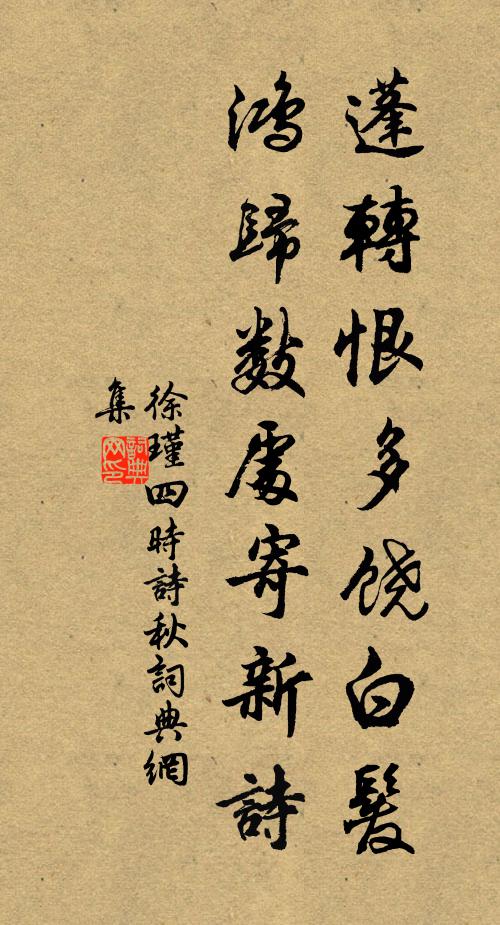 蓬轉恨多饶白髮
鴻歸數處寄新詩
徐瑾四時詩秋詞典網
集
詞典网印